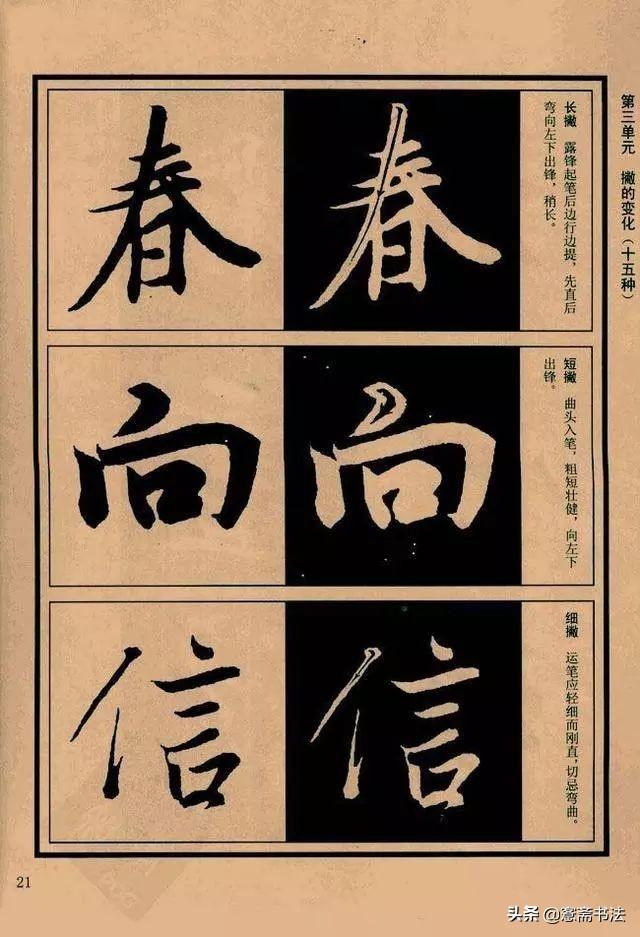 第三单元 撇的变化（十五种）
春
春
长撇 露锋起笔后边行边提，先直后
弯向左下出锋，稍长。
向
向
短撇 曲头入笔，粗短壮健，向左下
出锋。
信
信
细撇 运笔应轻细而刚直，切忌弯曲。
21
头条 @窻斋书法